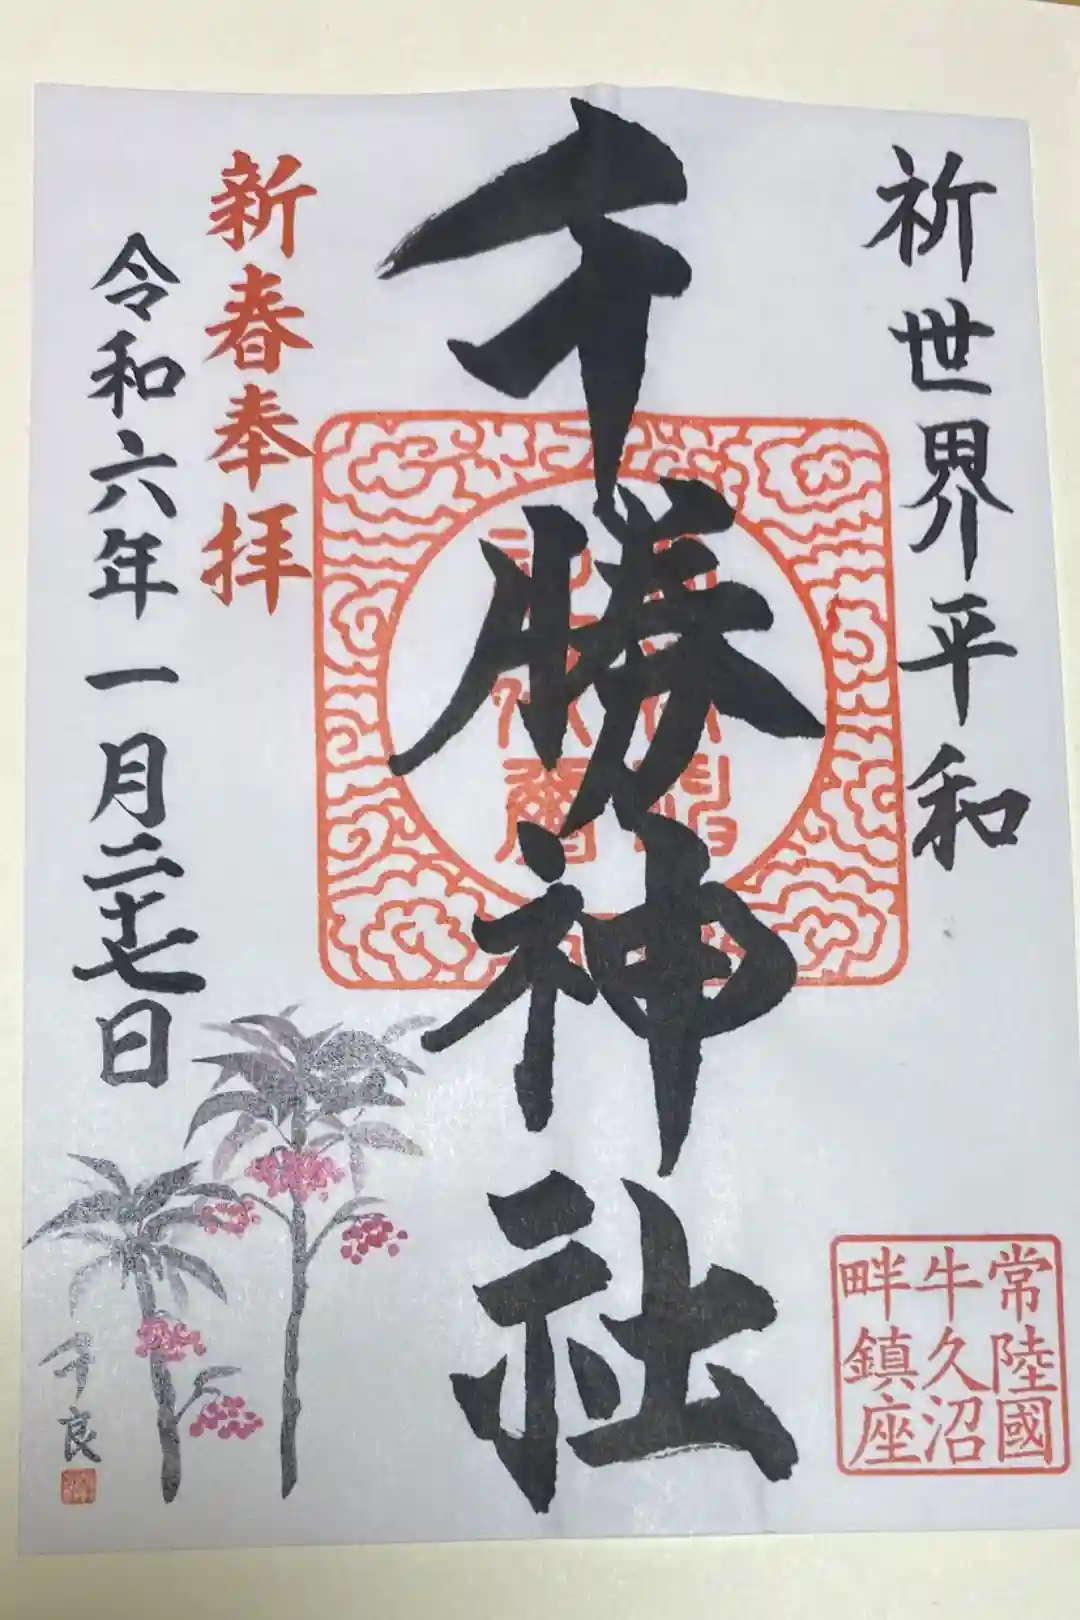 祈世界平和
千勝神社
新春奉拝
令和六年一月二十七日
常陸國
牛久沼
畔鎮座
千良